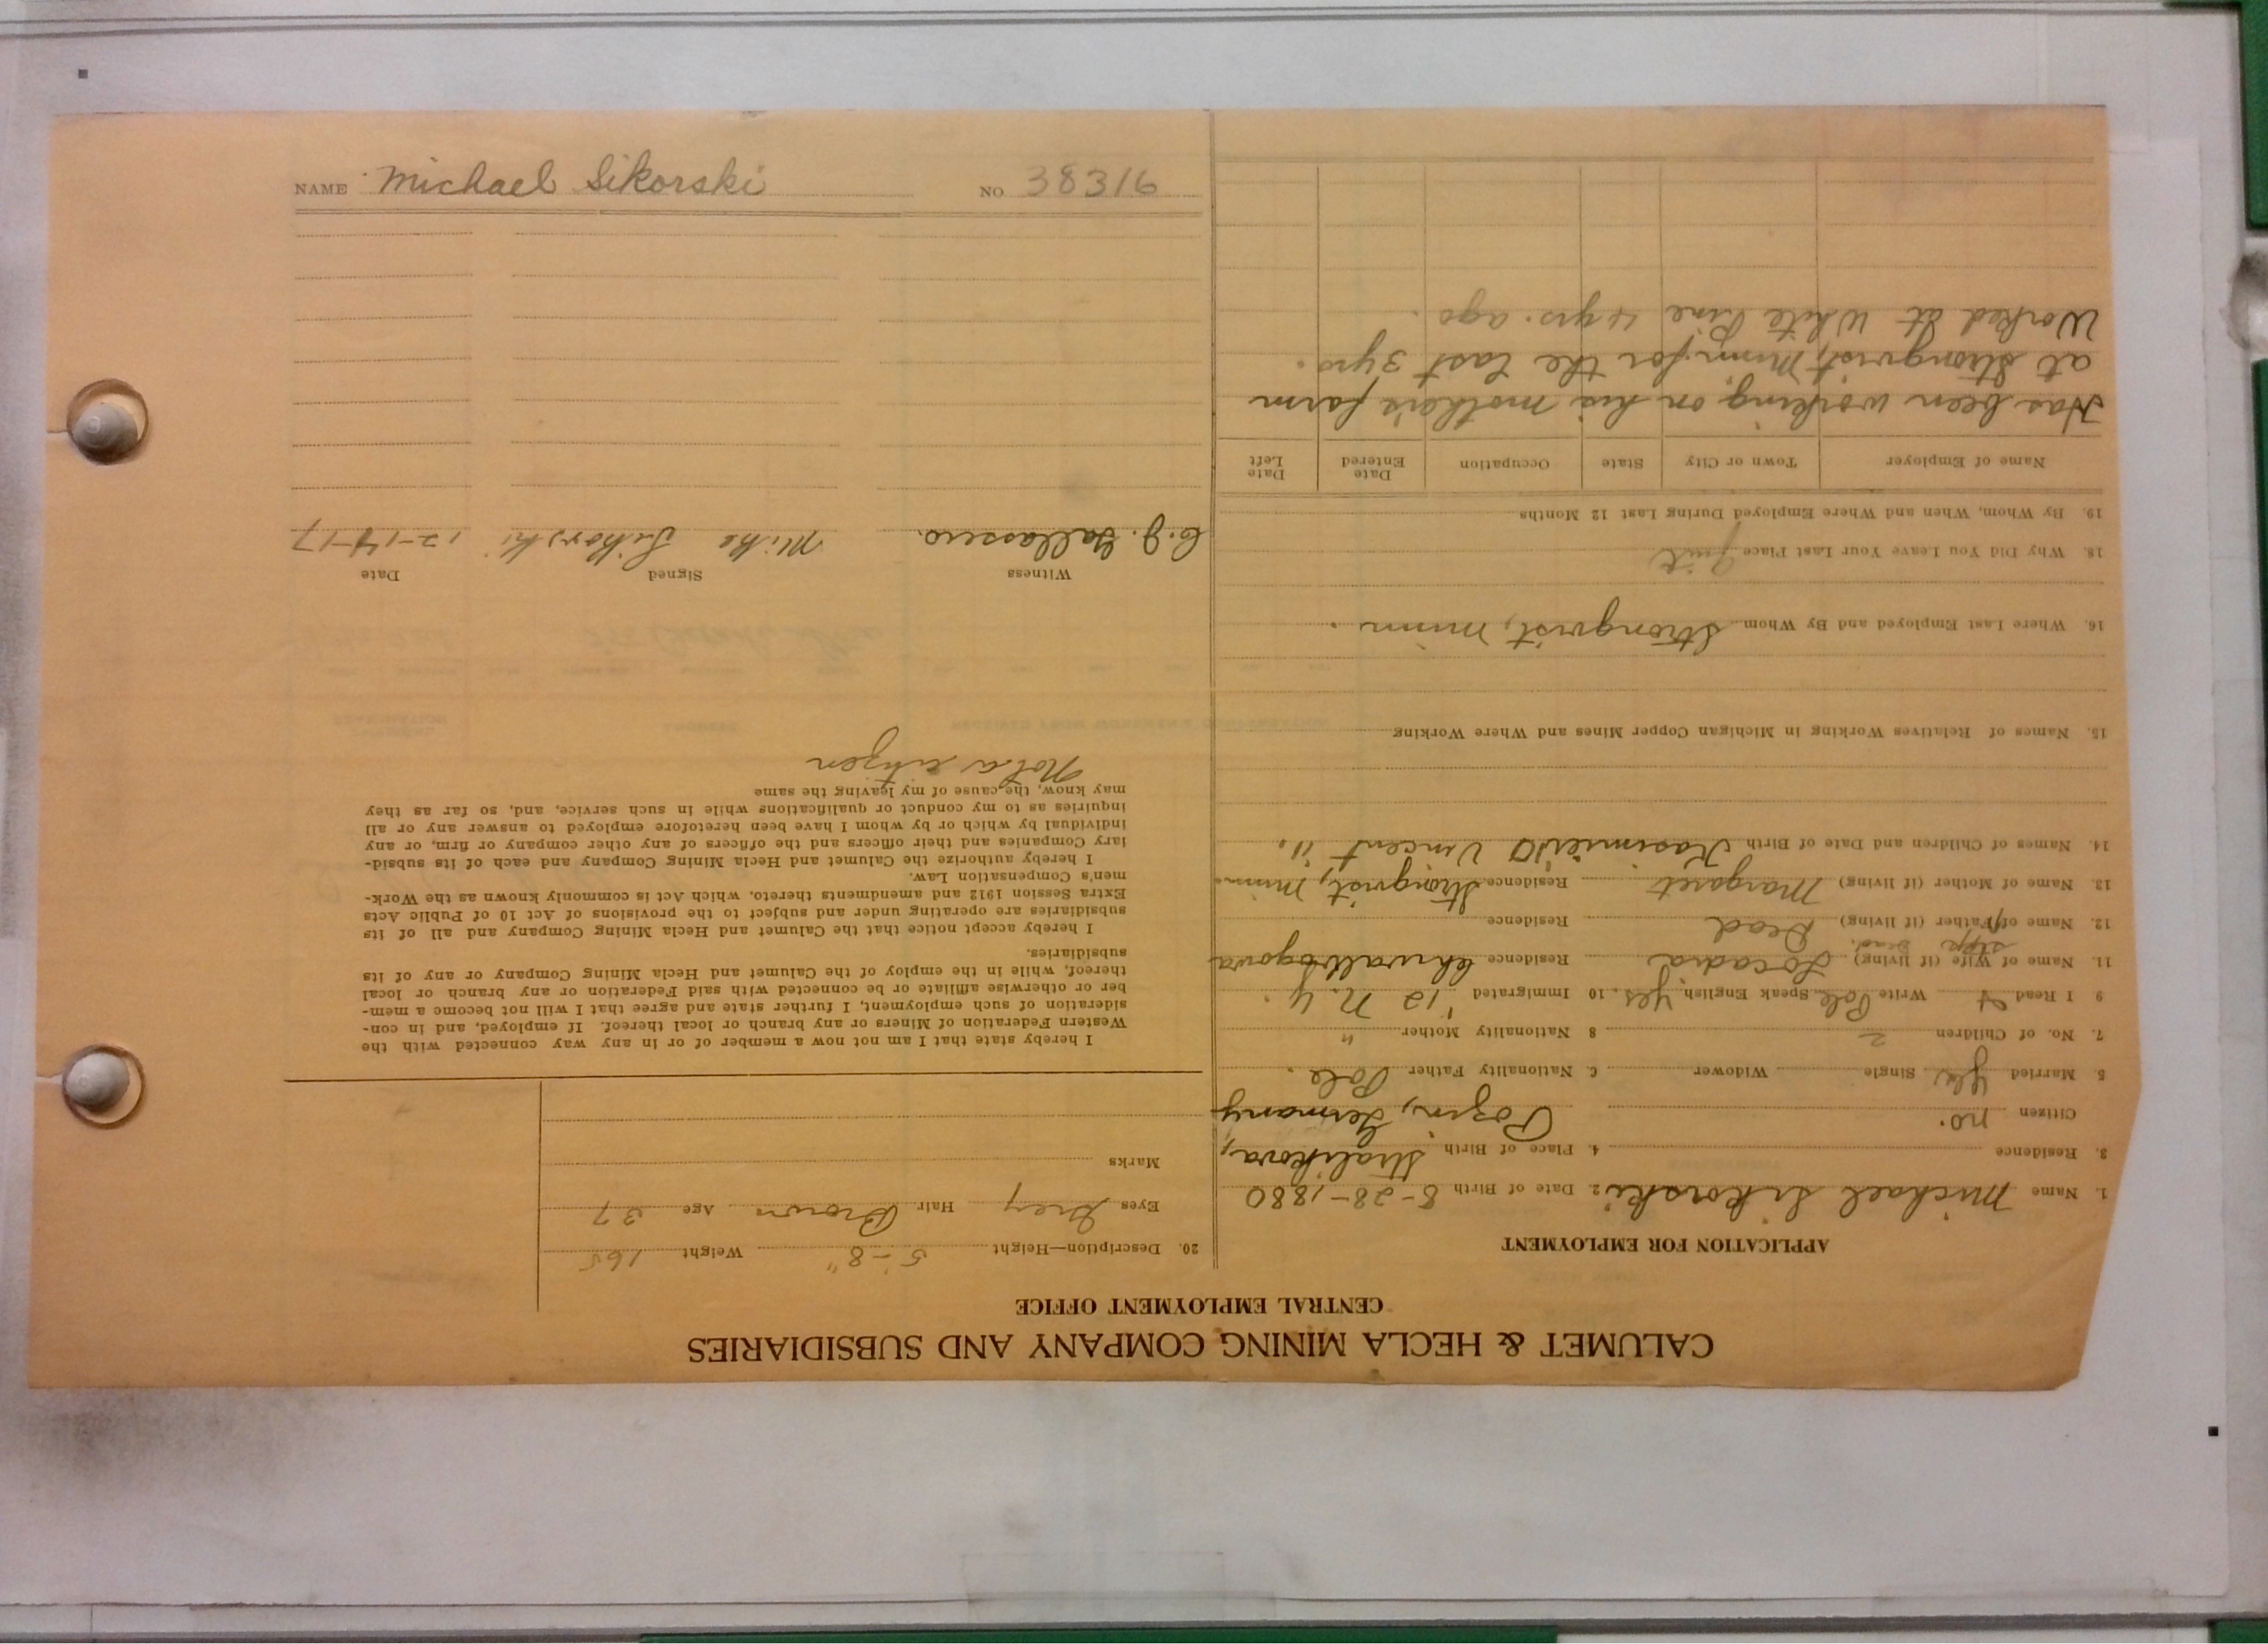 CALUMET & HECLA MINING COMPANY AND SUBSIDIARIES
CENTRAL EMPLOYMENT OFFICE
APPLICATION FOR EMPLOYMENT
1. Name Michael Sikorski 2. Date of Birth 8-28-1880
3. Residence 4. Place of Birth Stralkova,
Citizen no. Pozin, Germany
5 Married Yes Single Widower 6. Nationality Father Pole.
7. No. of Children 2 8 Nationality Mother "
9 I Read & Write Pole Speak English Yes. 10 Immigrated '12 N.Y.
11. Name of Wife (if living) Locadia Residence Chwaltbogowa
step Dead.
12. Name of Father (if living) Dead Residence
13. Name of Mother (if living) Margaret Residence Strongvist, Minn.
14. Names of Children and Date of Birth Kasimier 10 Vincent 11.
15. Names of Relatives Working in Michigan Copper Mines and Where Working
16. Where Last Employed and By Whom Strongvist, Minn.
18. Why Did You Leave Your Last Place Quit
19. By Whom, When and Where Employed During Last 12 Months
Name of Employer Town or City State Occupation Date Entered Date Left
Has been working on his mother's farm
at Strongvist, Minn. for the last 3 yrs.
Worked at White Pine 4 yrs. ago.
20. Description—Height 5-8" Weight 165
Eyes Grey Hair Brown Age 37
Marks
I hereby state that I am not now a member of or in any way connected with the
Western Federation of Miners or any branch or local thereof. If employed, and in con-
sideration of such employment, I further state and agree that I will not become a mem-
ber or otherwise affiliate or be connected with said Federation or any branch or local
thereof, while in the employ of the Calumet and Hecla Mining Company or any of its
subsidiaries.
I hereby accept notice that the Calumet and Hecla Mining Company and all of its
subsidiaries are operating under and subject to the provisions of Act 10 of Public Acts
Extra Session 1912 and amendments thereto, which Act is commonly known as the Work-
men's Compensation Law.
I hereby authorize the Calumet and Hecla Mining Company and each of its subsid-
iary Companies and their officers and the officers of any other company or firm, or any
individual by which or by whom I have been heretofore employed to answer any or all
inquiries as to my conduct or qualifications while in such service, and, so far as they
may know, the cause of my leaving the same
Not a citizen
Witness Signed Date
C. J. Gallassero. Mike Sikorski 12-14-17
NAME Michael Sikorski NO 38316